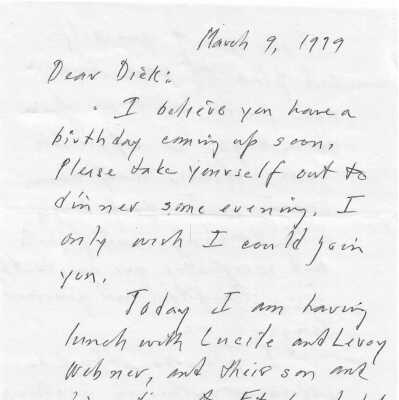 March 9, 1999
Dear Dick:
I believe you have a
birthday coming up soon.
Please take yourself out to
dinner some evening. I
only wish I could join
you.
Today I am having
lunch with Lucile and Leroy
Webner, and their son and